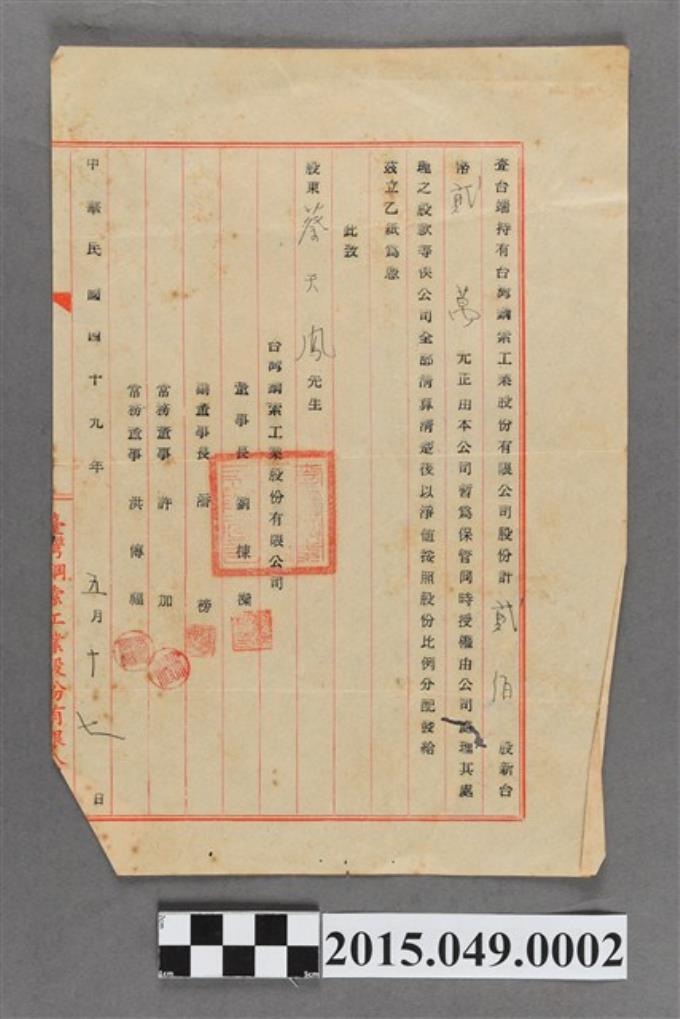 查台端持有台灣鋼索工業股份有限公司股份計貳佰股新台
幣貳萬元正由本公司暫為保管同時授權由公司處理其處
理之股款等俟公司全部清算清楚後以淨值按照股份比例分配發給
茲立乙紙為憑
此致
股東蔡天鳳先生
台灣鋼索工業股份有限公司
董事長劉棟
副董事長潘榜
常務董事許加
常務董事洪傳福
中華民國四十九年五月十七日
臺灣鋼索工業股份有限公
2015.049.0002